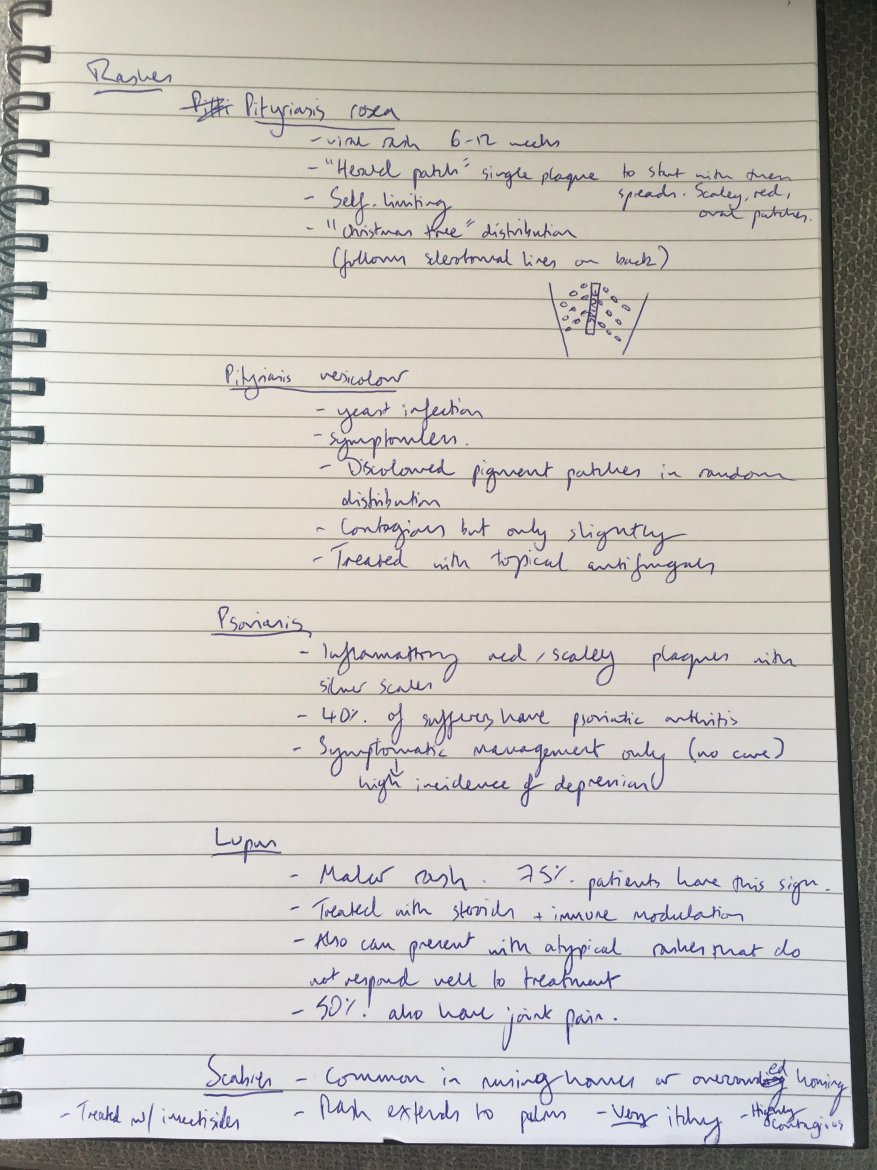 Rashes
Pityriasis rosea
- viral rash 6-12 weeks
- "Herald patch" single plaque to start with then
spreads. Scaley, red,
oval patches.
- Self-limiting
- "christmas tree" distribution
(follows skeletonal lines on back)
SPINE
Pityriasis vesicolour
- yeast infection
- symptomless.
- Discoloured pigment patches in random
distribution
- Contagious but only slightly
- Treated with topical antifungals
Psoriasis
- Inflammatory red, scaley plaques with
silver scales
- 40% of suffers have psoriatic arthritis
- Symptomatic management only (no cure)
high incidence of depression
Lupus
- Malar rash. 75% patients have this sign.
- Treated with steroids + immune modulation
- Also can present with atypical rashes that do
not respond well to treatment
- 50%! also have joint pain.
Scabies - Common in nursing homes or overcrowded housing
- Treated w/ insectisides - Rash extends to palms - Very itchy - Highly contagious